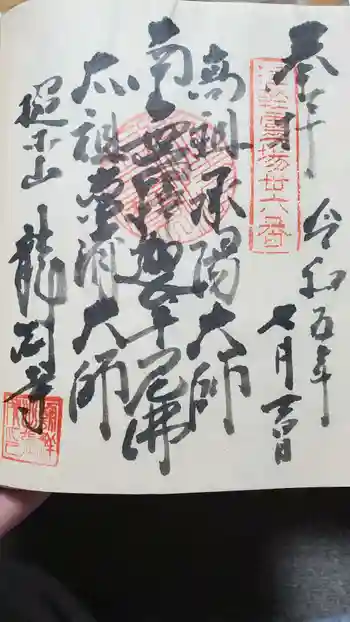 奉拝
霊場廿六番
令和五年
七月
高祖承陽大師
南無釋迦牟尼佛
太祖常済大師
山 龍 寺